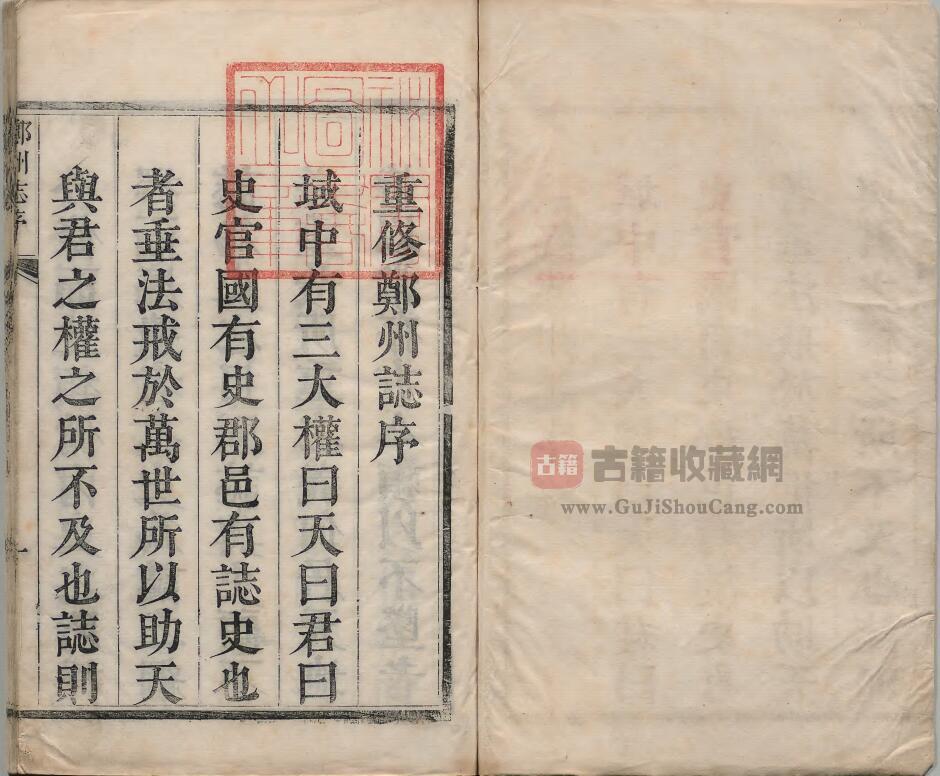 重修鄭州誌序
域中有三大權曰天曰君曰
史官國有史郡邑有誌史也
者垂法戒於萬世所以助天
與君之權之所不及也誌則
鄭州誌序
一
古籍
古籍收藏網
www.GuJiShouCang.com